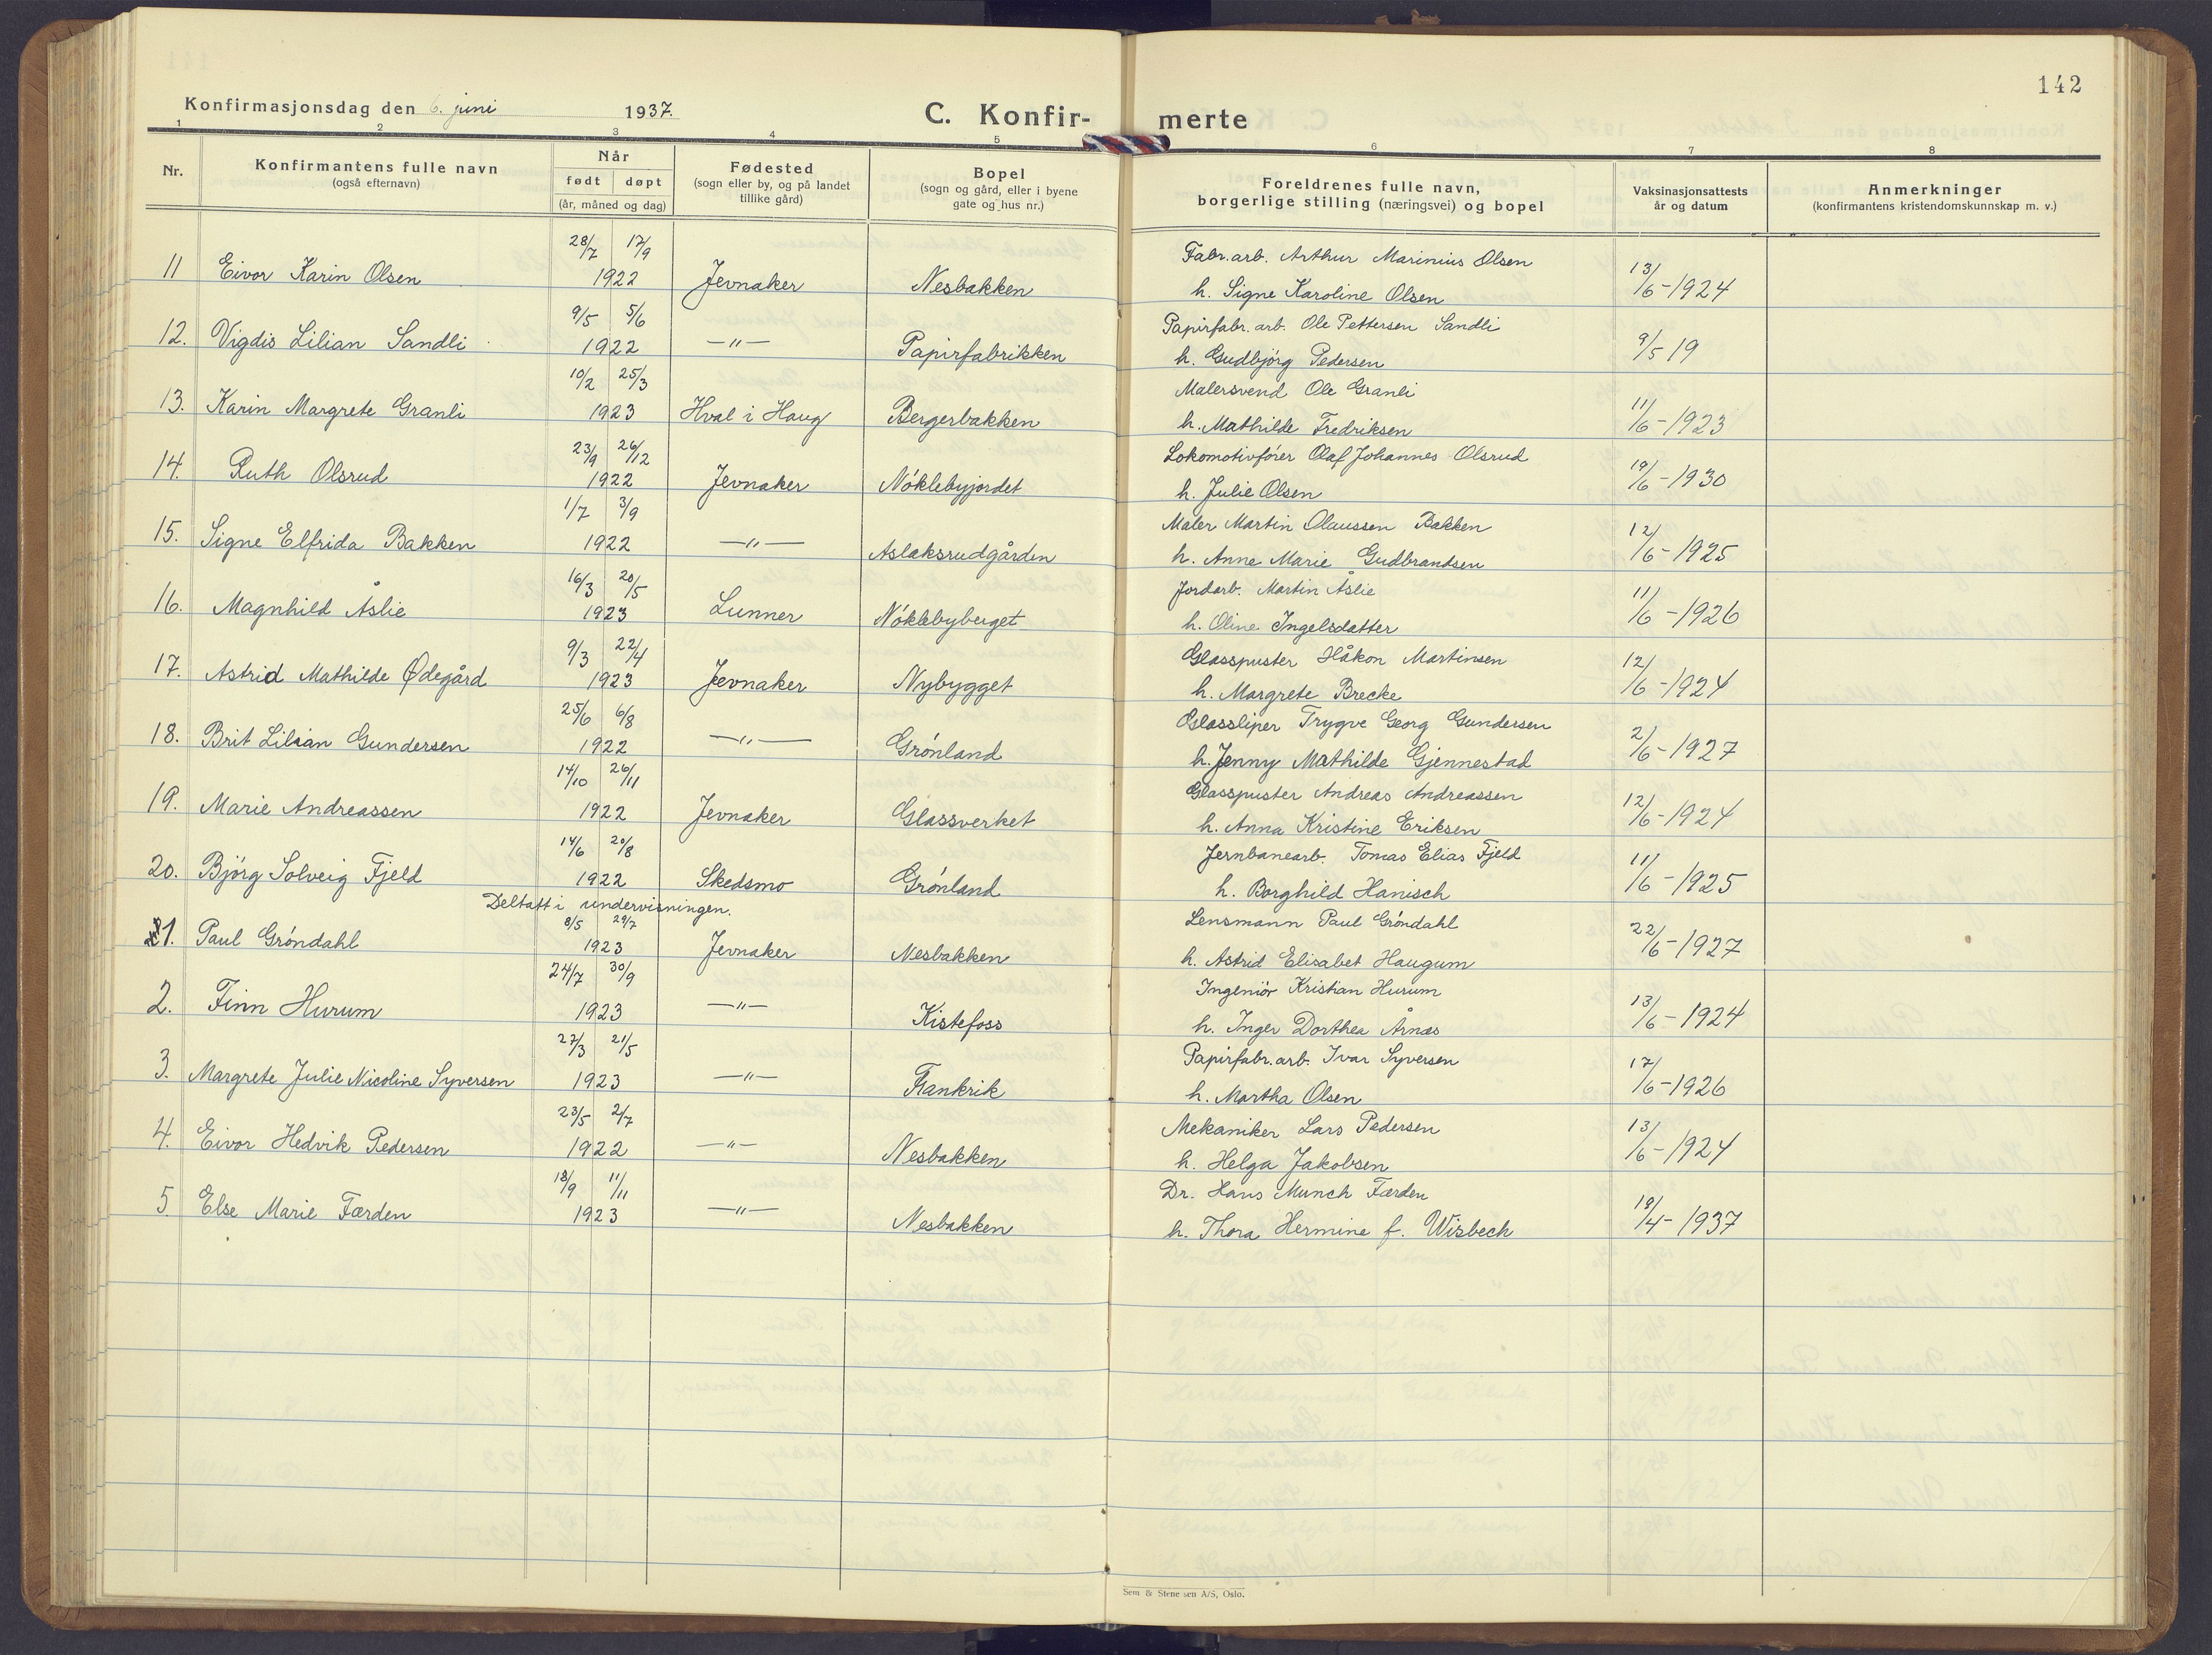 142
Konfirmasjonsdag den 6. juni 1937.
C. Konfir-merte
1 2 3 4 5 6 7 8
Nr.
Konfirmantens fulle navn
(også efternavn)
Når
født døpt
(år, måned og dag)
Fødested
(sogn eller by, og på landet
tillike gård)
Bopel
(sogn og gård, eller i byene
gate og hus nr.)
Foreldrenes fulle navn,
borgerlige stilling (næringsvei) og bopel
Vaksinasjonsattests
år og datum
Anmerkninger
(konfirmantens kristendomskunnskap m. v.)
28/7 17/9 Fabr.arb. Arthur Marinius Olsen
11 Eivor Karin Olsen 1922 Jevnaker Nesbakken h. Signe Karoline Olsen 13/6-1924
9/5 5/6 Papirfabr. arb. Ole Pettersen Sandli
12. Vigdis Lilian Sandli 1922 —"— Papirfabrikken h. Gudbjörg Pedersen 9/5 19
10/2 25/3 Malersvend Ole Granli
13. Karin Margrete Granli 1923 Hval i Haug Bergerbakken h. Mathilde Fredriksen 11/6-1923
23/9 26/12 Lokomotivfører Olaf Johannes Olsrud
14. Ruth Olsrud 1922 Jevnaker Nóklebyjordet h. Julie Olsen 19/6-1930
1/7 3/9 Maler Martin Olaussen Bakken
15. Signe Elfrida Bakken 1922 —"— Aslaksrudgården h. Anne Marie Gudbrandsen 12/6-1925
16/3 20/5 Jordarb. Martin Åslie
16. Magnhild Åslie 1923 Lunner Nóklebyberget h. Oline Ingelsdatter 11/6-1926
9/3 22/4 Glasspuster Håkon Martinsen
17. Astrid Mathilde Ødegård 1923 Jevnaker Nybygget h. Margrete Brecke 12/6-1924
25/6 6/8 Glassliper Trygve Georg Gundersen
18. Brit Lilian Gundersen 1922 —"— Grónland h. Jenny Mathilde Gjennestad 2/6-1927
14/10 26/11 Glasspuster Andreas Andreassen
19. Marie Andreassen 1922 Jevnaker Glassverket h. Anna Kristine Eriksen 12/6-1924
14/6 20/8 Jernbanearb. Tomas Elias Fjeld
20. Bjórg Solveig Fjeld 1922 Skedsmo Grónland h. Borghild Hanisch 11/6-1925
Deltatt i undervisningen.
8/5 29/7 Lensmann Paul Gróndahl
1. Paul Gróndahl 1923 Jevnaker Nesbakken h. Astrid Elisabet Haugum 22/6-1927
24/7 30/9 Ingeniór Kristian Hurum
2. Finn Hurum 1923 —"— Kistefoss h. Inger Dorthea Årnæs 13/6-1924
27/3 21/5 Papirfabr.arb. Ivar Syversen
3. Margrete Julie Nicoline Syversen 1923 —"— Frankrik h. Martha Olsen 17/6-1926
23/5 2/7 Mekaniker Lars Pedersen
4. Eivor Hedvik Pedersen 1922 —"— Nesbakken h. Helga Jakobsen 13/6-1924
18/9 11/11 Dr. Hans Munch Færden
5. Else Marie Færden 1923 —"— Nesbakken h. Thora Hermine f. Wisbech 19/4-1937
Sem & Stenersen A/S, Oslo.